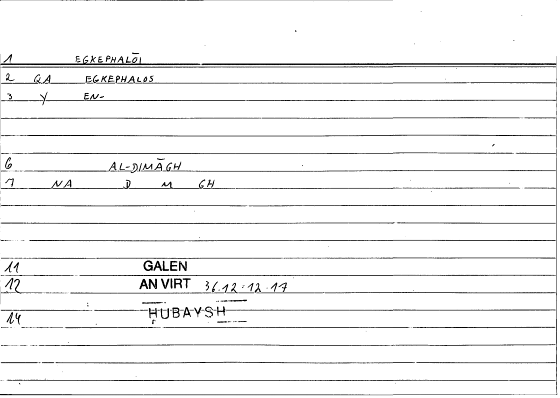 1 EGKEPHALŌI
2 QA EGKEPHALOS
3 Y EN-
6 AL-DIMĀGH
7 NA D M GH
11 GALEN
12 AN VIRT 36.12-12.17
14 ḤUBAYSH